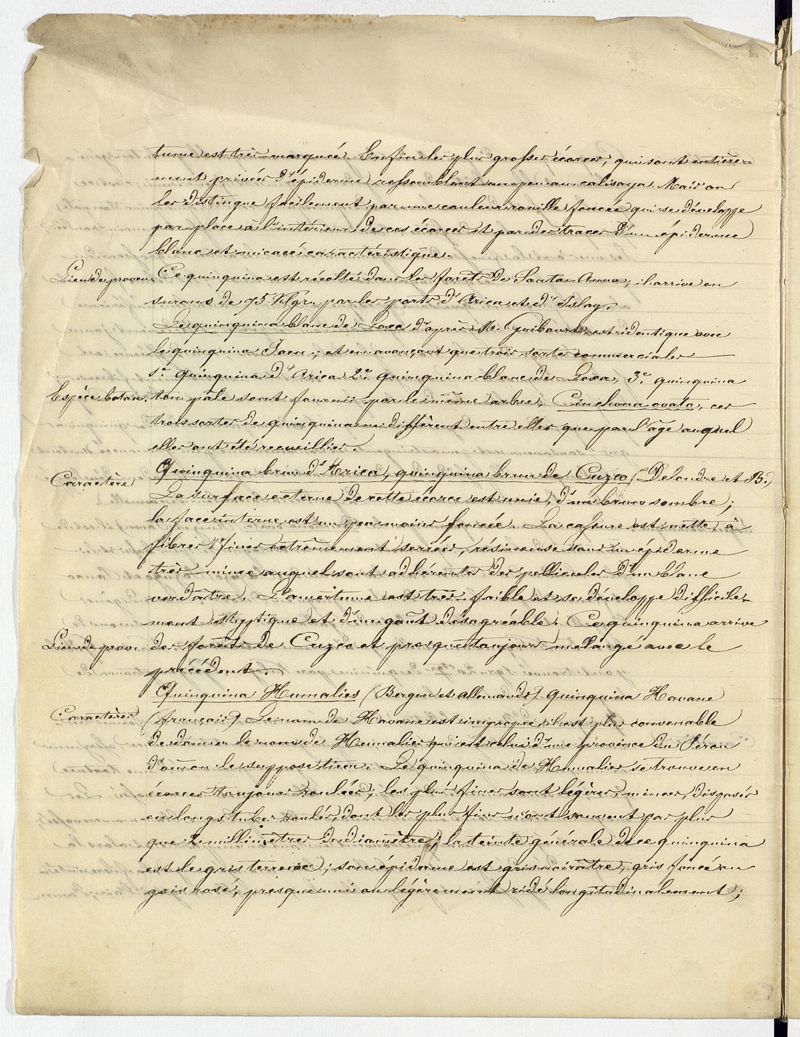 tume est très marquée. Enfin les plus grosses écorces, qui sont entière-
ment privées d'épiderme ressemblent un peu au calisaya. Mais on
les distingue facilement par une couleur rouille foncée qui se développe
par place à l'intérieur de ces écorces et par des traces d'un épiderme
blanc et micacé caractéristique.
Lieu de proven. Ce quinquina est récolté dans les forêts de Santa-Anna; il arrive en
surons de 75 kilgr. par les ports d'Arica et d'Islay.
Le quinquina blanc de Loxa d'après Mr Guibourt, est identique avec
le quinquina Jaen; et en avançant que trois sortes commerciales
1º. quinquina d'Arica 2º. quinquina blanc de Loxa, 3º. quinquina
Espèce botan. ten pale sont fournis par le même arbre, Cinchona ovata, ces
trois sortes de quinquina ne diffèrent entre elles que par l'âge auquel
elles ont été recueillies.
Caractère Quinquina brun d'Arica, quinquina brun de Cuzco (Delondre et B.)
La surface externe de cette écorce est unie, d'un brun sombre;
la face interne est un peu moins foncée. La cassure est nette à
fibres fines extrêmement serrées, résineuse sous un épiderme
très mince auquel sont adhérentes des pellicules d'un blanc
verdâtre. L'amertume est très faible et se développe difficile-
ment styptique et d'un goût désagréable. Ce quinquina arrive
Lieu de prov. des forêts de Cuzco et presque toujours mélangé avec le
précédent.
Quinquina Humalies (Bergen et allemands) quinquina Havane
Caractères (français). Le nom de Havane est impropre il est plus convenable
de donner le nom de Humalies qui est celui d'une province du Pérou
d'où on le suppose tiré. Le quinquina de Humalies se trouve en
écorces toujours roulées; les plus fines sont légères, minces, disposées
en longs tubes roulés, dont les plus fins n'ont souvent pas plus
que 2 millimètres de diamètre; la teinte générale de ce quinquina
est le gris terreux; son épiderme est gris noirâtre, gris foncé ou
gris rosé, presque uni ou légèrement ridé longitudinalement;